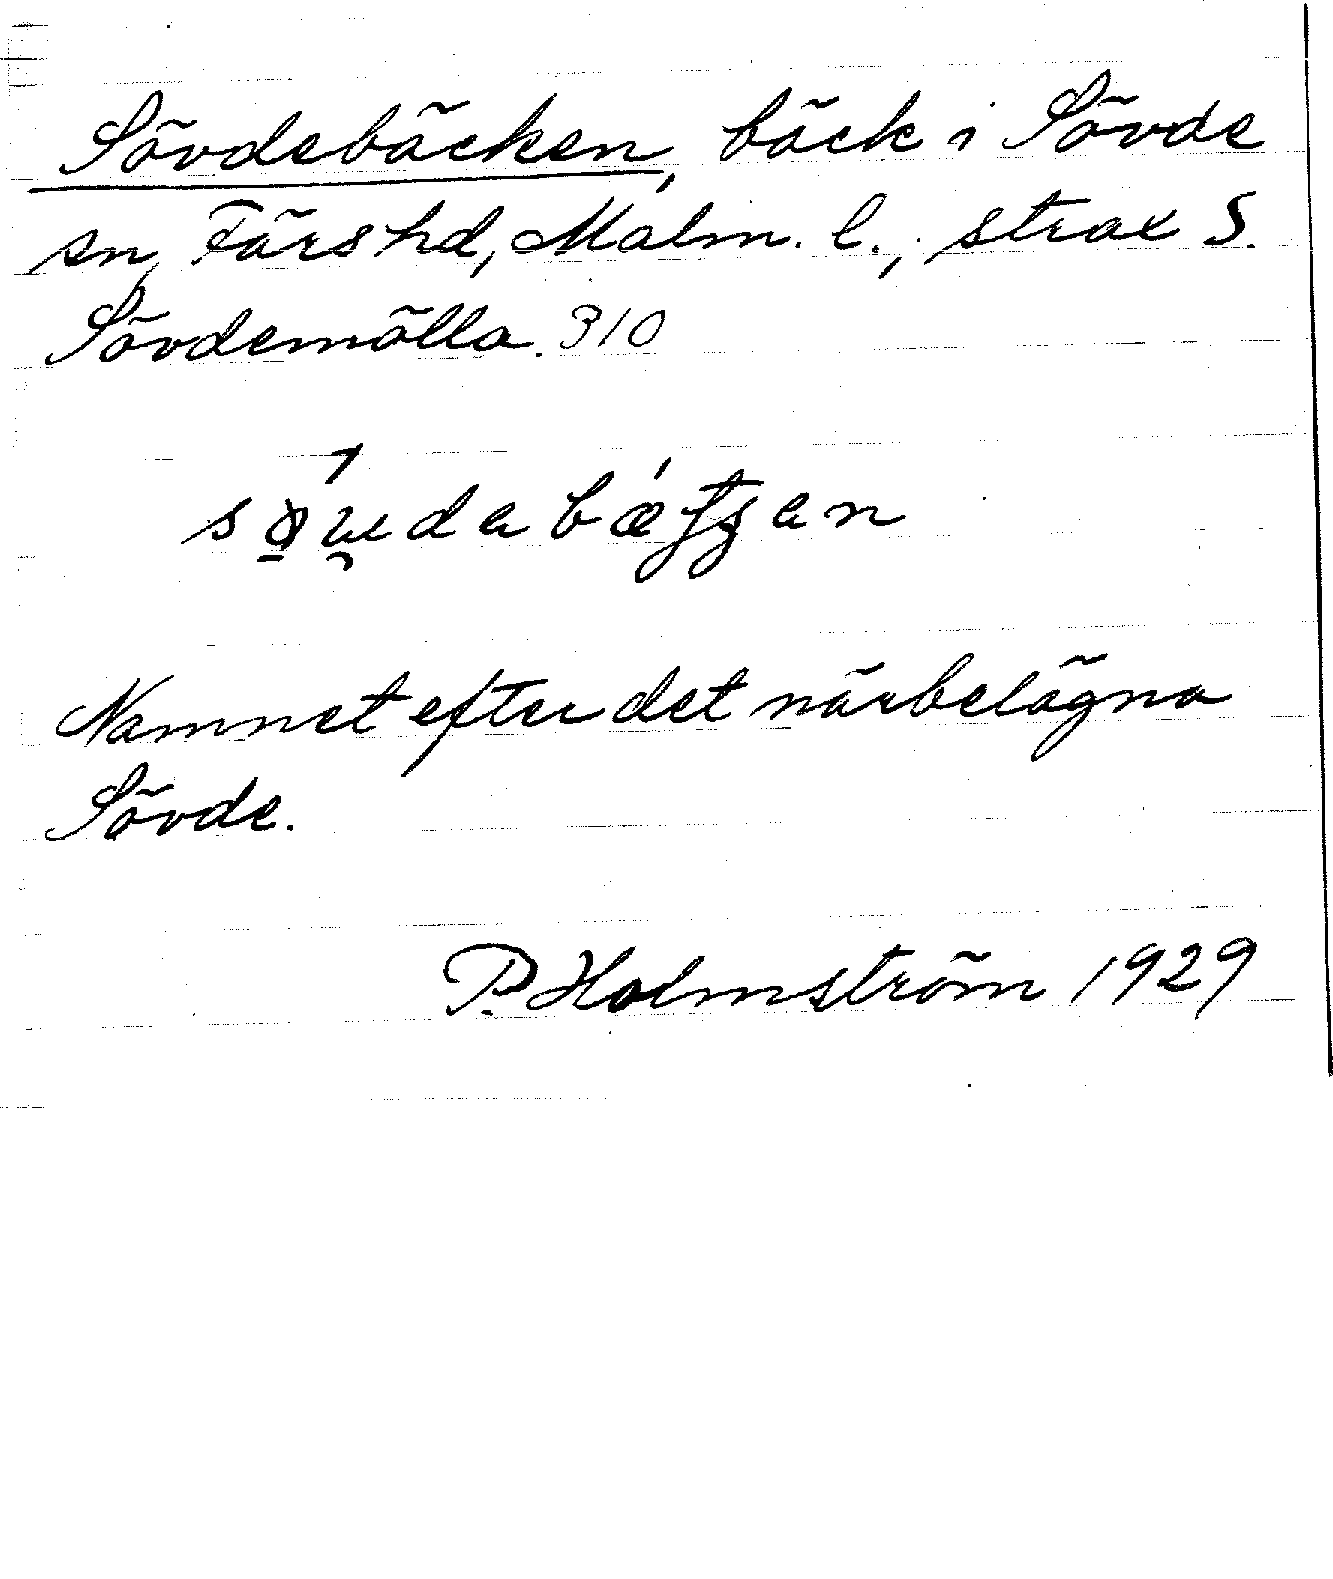 Sövdebäcken, bäck i Sövde
sn, Färs hd, Malm. l., strax S.
Sövdemölla. 310
Namnet efter det närbelägna
Sövde.
P. Holmström 1929